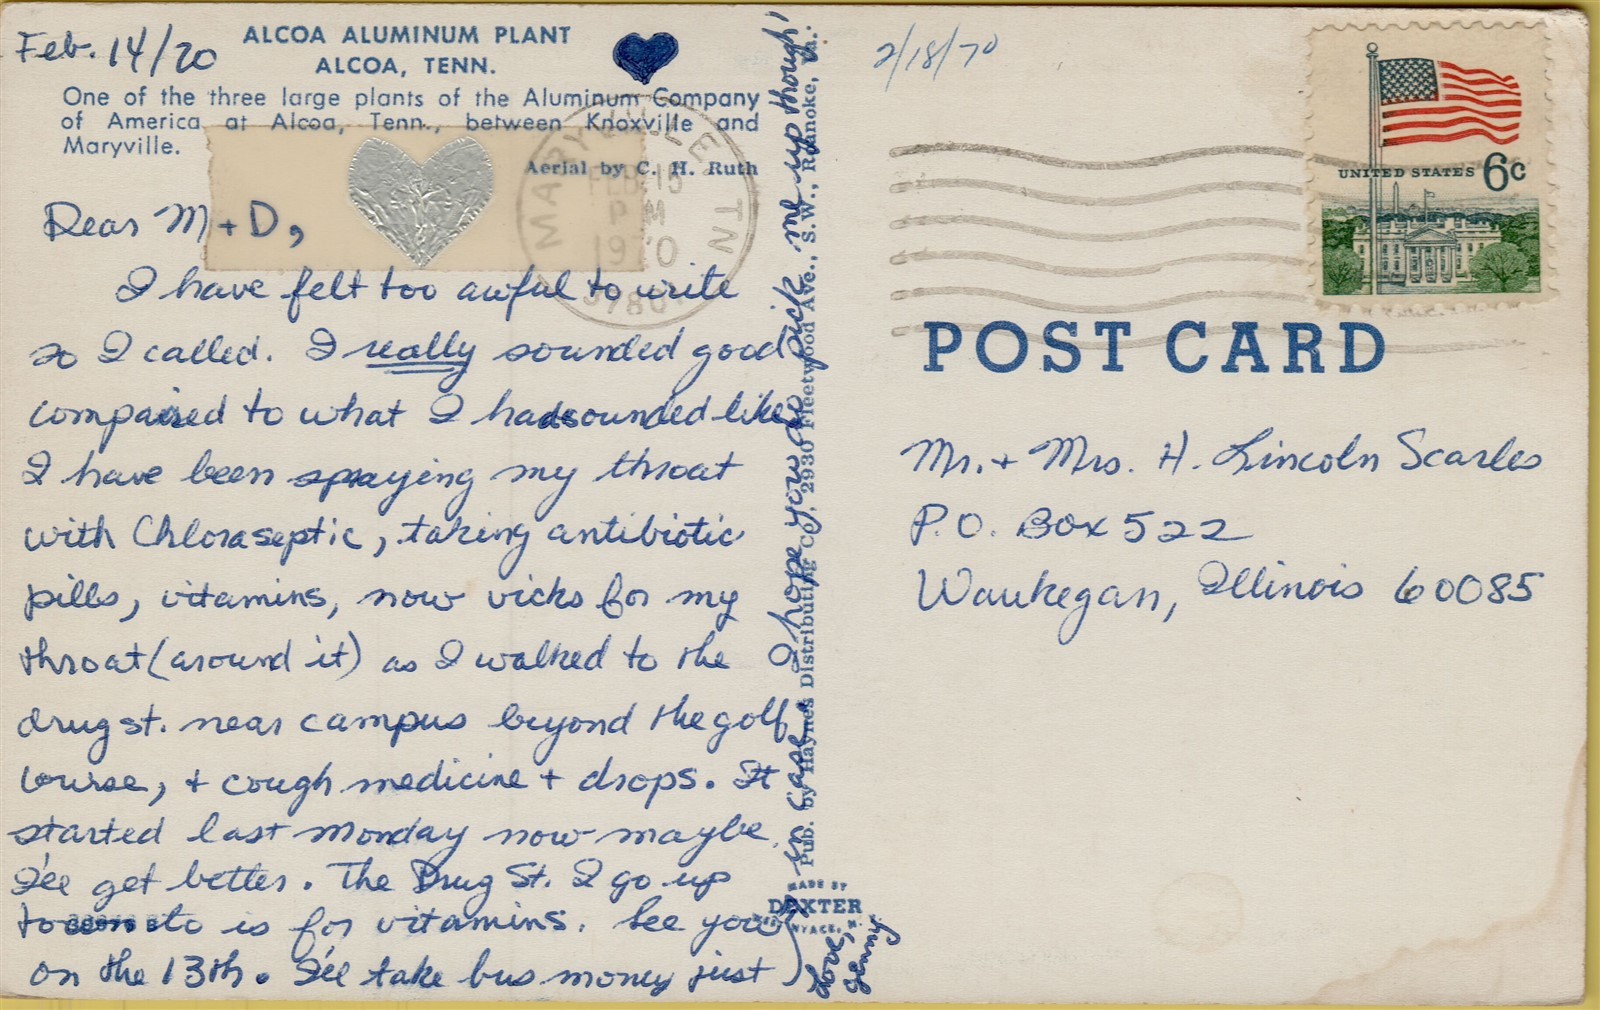 Feb. 14/70
ALCOA ALUMINUM PLANT
ALCOA, TENN.
One of the three large plants of the Aluminum Company
of America at Alcoa, Tenn., between Knoxville and
Maryville.
Aerial by C. H. Ruth
MARYVILLE TN
FEB 15
PM
1970
Dear M + D,
I have felt too awful to write
so I called. I really sounded good
compaired to what I had sounded like
I have been spraying my throat
with Chloraseptic, taking antibiotic
pills, vitamins, now vicks for my
throat (around it) as I walked to the
drug st. near campus beyond the golf
course, + cough medicine + drops. It
started last Monday now maybe
I'll get better. The Drug St. I go up
to is for vitamins. See you
on the 13th. I'll take bus money just
in case I hope you do pick me up though!
Love,
Jenny
Pub. by Haynes Distributing Co., 2930 Fleetwood Ave., S.W., Roanoke, Va.
MADE BY
DEXTER
WEST NYACK, N.Y.
2/18/70
UNITED STATES 6c
POST CARD
Mr. + Mrs. H. Lincoln Scarles
P.O. Box 522
Waukegan, Illinois 60085